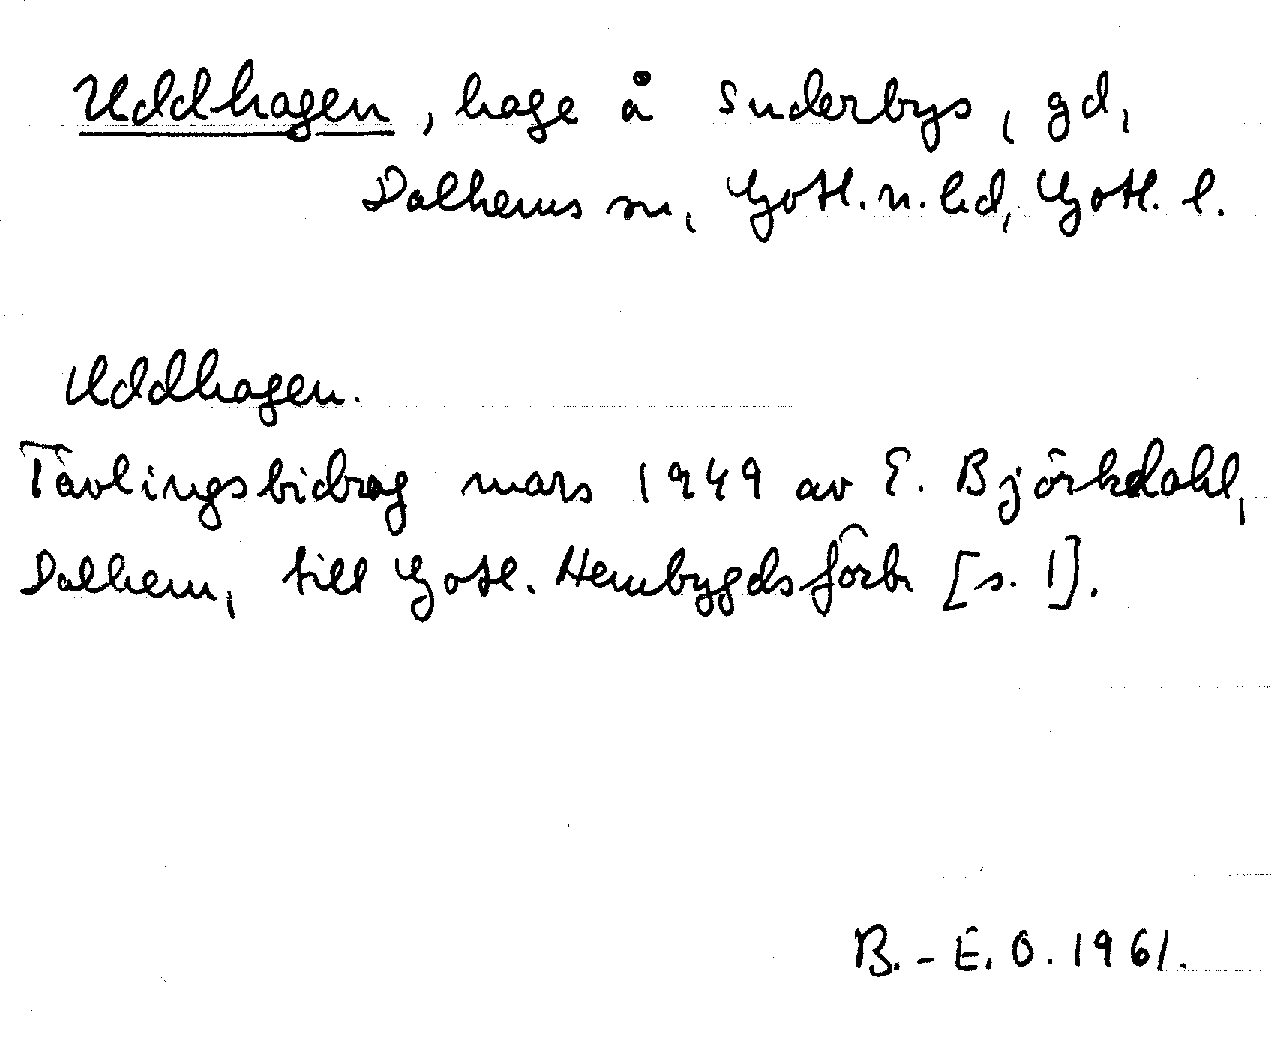 Uddhagen, hage å Suderbys, gd,
Dalhems sn, Gotl. n. hd, Gotl. l.
Uddhagen.
Tävlingsbidrag mars 1949 av E. Björkdahl,
Dalhem, till Gotl. Hembygdsförb. [s. 1].
B.-E.O. 1961.